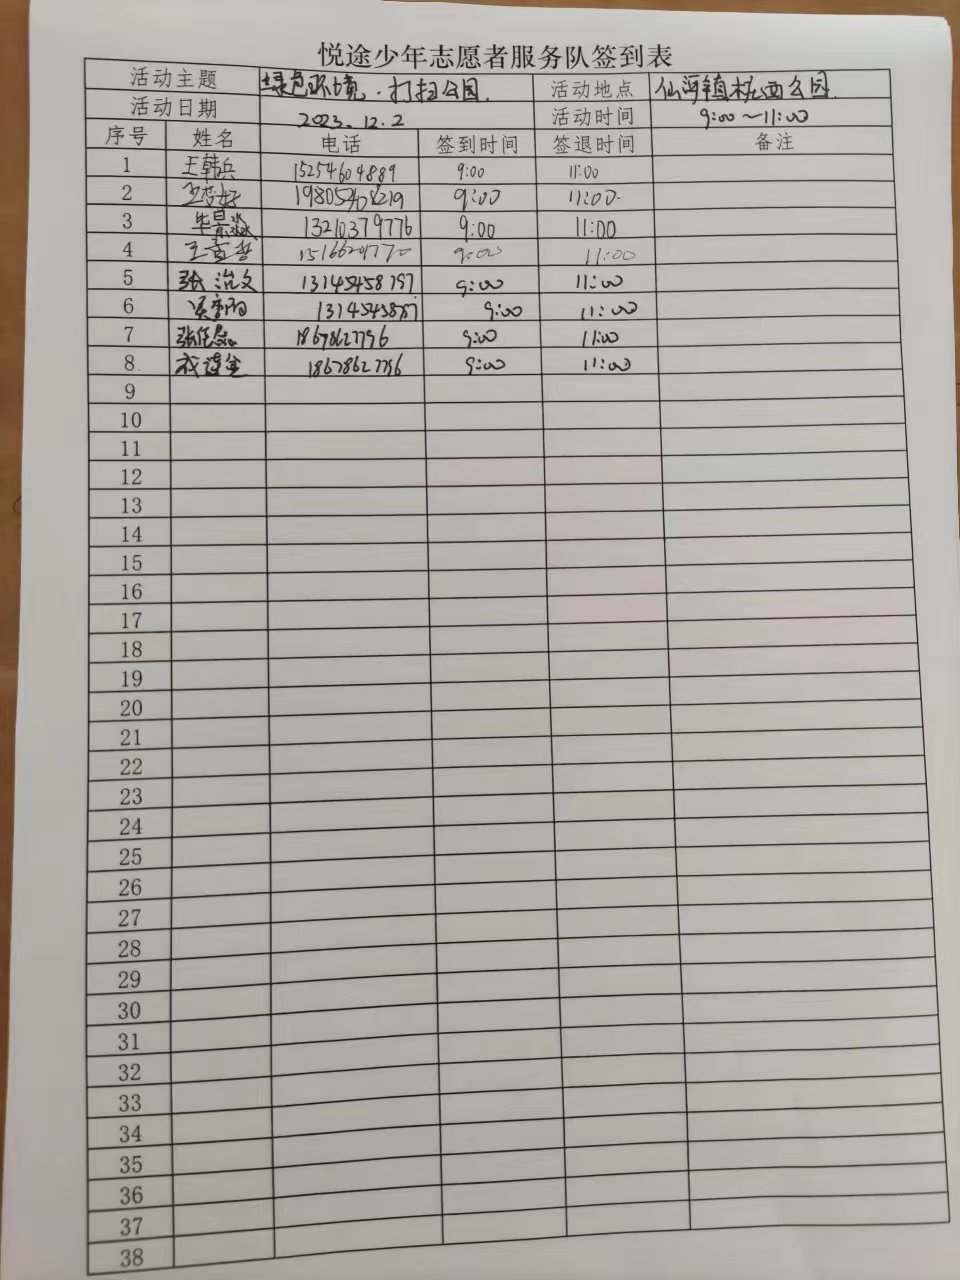 悦途少年志愿者服务队签到表
活动主题 绿色环境.打扫公园. 活动地点 仙河镇桩西公园
活动日期 2023.12.2 活动时间 9:00～11:00
序号 姓名 电话 签到时间 签退时间 备注
1 王韩兵 15254604889 9:00 11:00
2 19805408219 9:00 11:00
3 牛景淼 13210379776 9:00 11:00
4 9:00 11:00
5 张治文 13145458797 9:00 11:00
6 9:00 11:00
7 18678627796 9:00 11:00
8 18678627796 9:00 11:00
9
10
11
12
13
14
15
16
17
18
19
20
21
22
23
24
25
26
27
28
29
30
31
32
33
34
35
36
37
38